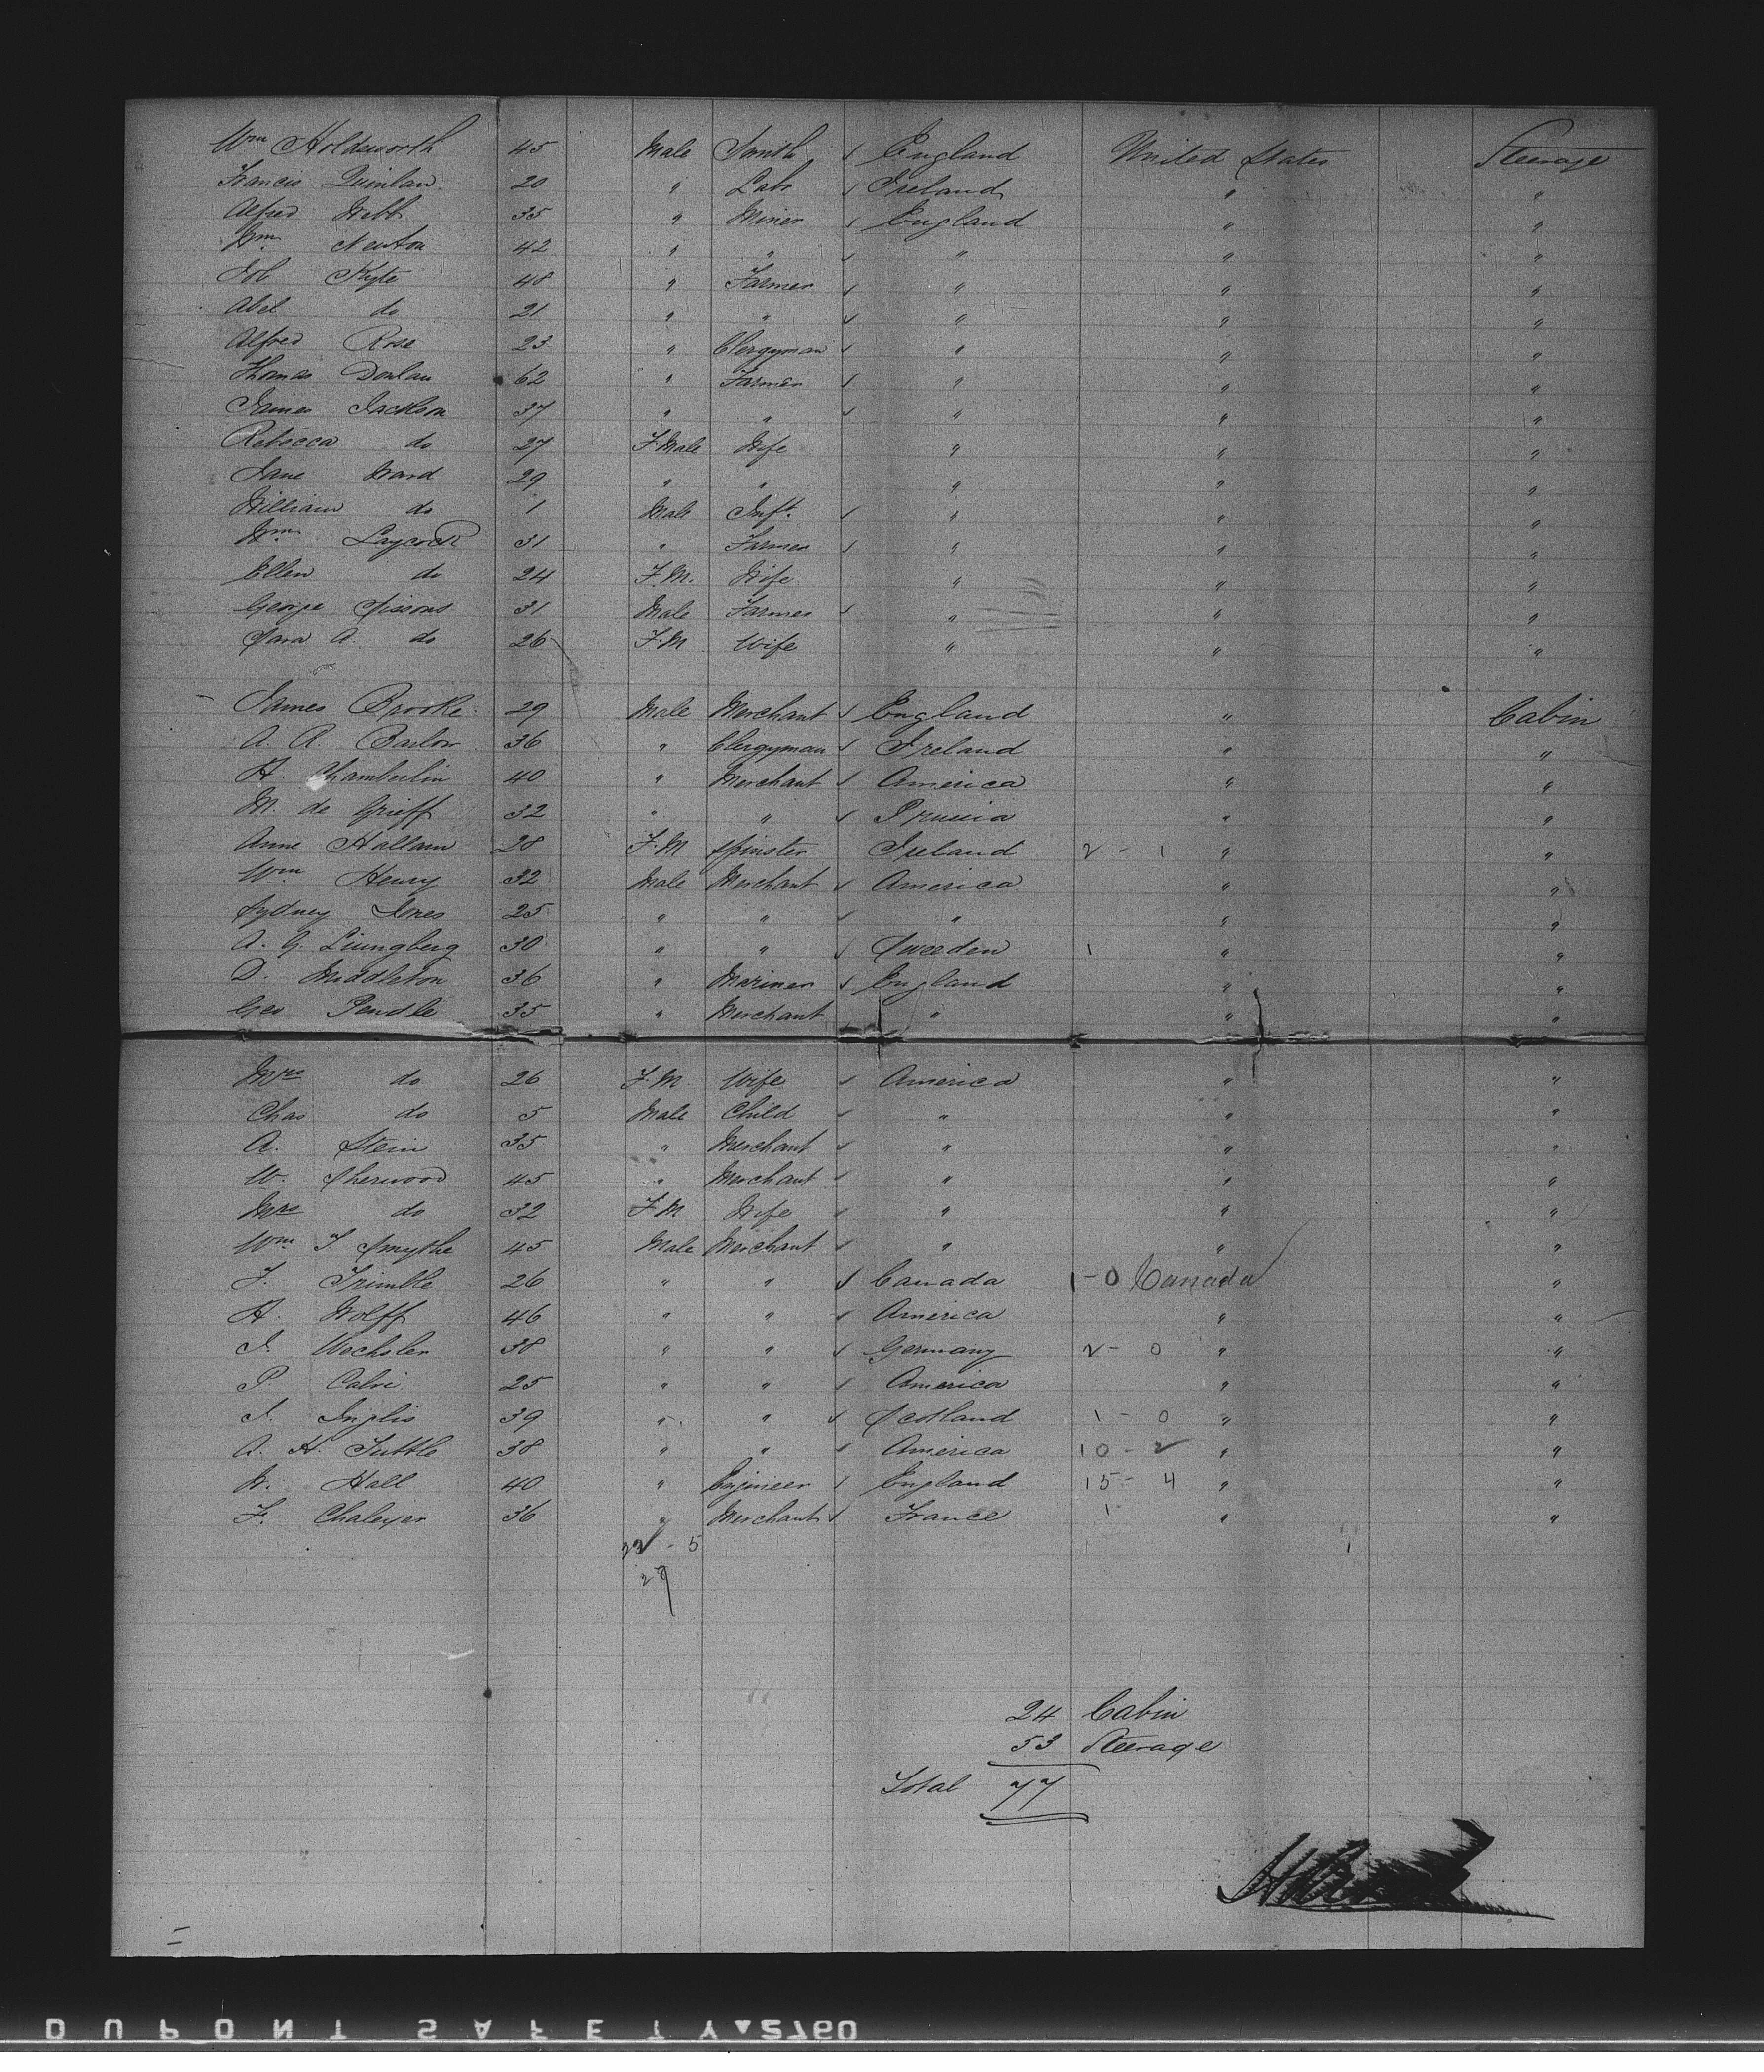 Wm Holdsworth 45 Male Smith ✓ England United States Steerage
Francis Quinlan 20 " Labr ✓ Ireland " "
Alfred Webb 35 " Miner ✓ England " "
Wm Newton 42 " " ✓ " " "
Job Kyte 48 " Farmer ✓ " " "
Abel do 21 " " ✓ " " "
Alfred Rose 23 " Clergyman ✓ " " "
Thomas Donlan 62 " Farmer ✓ " " "
James Jackson 37 " " ✓ " " "
Rebecca do 27 F.Male Wife " " "
Jane Ward 29 " " " " "
William do 1 Male Inft. ✓ " " "
Wm Laycock 31 " Farmer ✓ " " "
Ellen do 24 F.M. Wife " " "
George Sissons 31 Male Farmer ✓ " " "
Sara A. do 26 F.M Wife " " "
James Brooke 29 Male Merchant ✓ England " Cabin
A. R. Barlow 36 " Clergyman ✓ Ireland " "
H. Chamberlin 40 " Merchant ✓ America " "
M. de Grieff 32 " " ✓ Prussia " "
Anne Hallam 28 F.M Spinster Ireland 2 - 1 " "
Wm Henry 32 Male Merchant ✓ America " "
Sydney Jones 25 " " ✓ " " "
A. G. Liungberg 30 " " ✓ Sweeden 1 " "
D. Middleton 36 " Mariner ✓ England " "
Geo Pendle 35 " Merchant " " "
Mrs do 26 F.M. Wife ✓ America " "
Chas do 5 Male Child ✓ " " "
A. Stein 35 " Merchant ✓ " " "
W. Sherwood 45 " Merchant ✓ " " "
Mrs do 32 F.M Wife ✓ " " "
Wm T. Smythe 45 Male Merchant ✓ " " "
J. Trimble 26 " " ✓ Canada 1 - 0 Canada "
H. Wolff 46 " " ✓ America " "
I. Wechsler 38 " " ✓ Germany 2 - 0 " "
P. Calvi 25 " " ✓ America " "
J. Inglis 39 " " ✓ Scotland 1 - 0 " "
A. H. Tuttle 38 " " ✓ America 10 - 2 " "
W. Hall 40 " Engineer ✓ England 15 - 4 " "
F. Chaleyer 36 " Merchant ✓ France 1 " "
22 - 5
27
24 Cabin
53 Steerage
Total 77
DUPONT SAFETY 2760